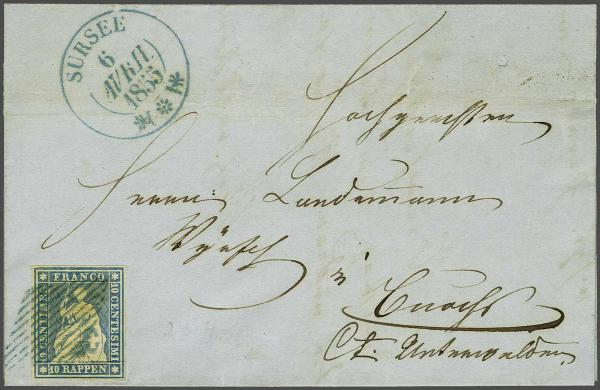 SURSEE
6
AVRIL
1855
Hochgeachten
Herrn Landammann
Würsch
in
Buochs
Ct. Unterwalden
FRANCO
10 CENTIMES
10 CENTESIMI
10 RAPPEN